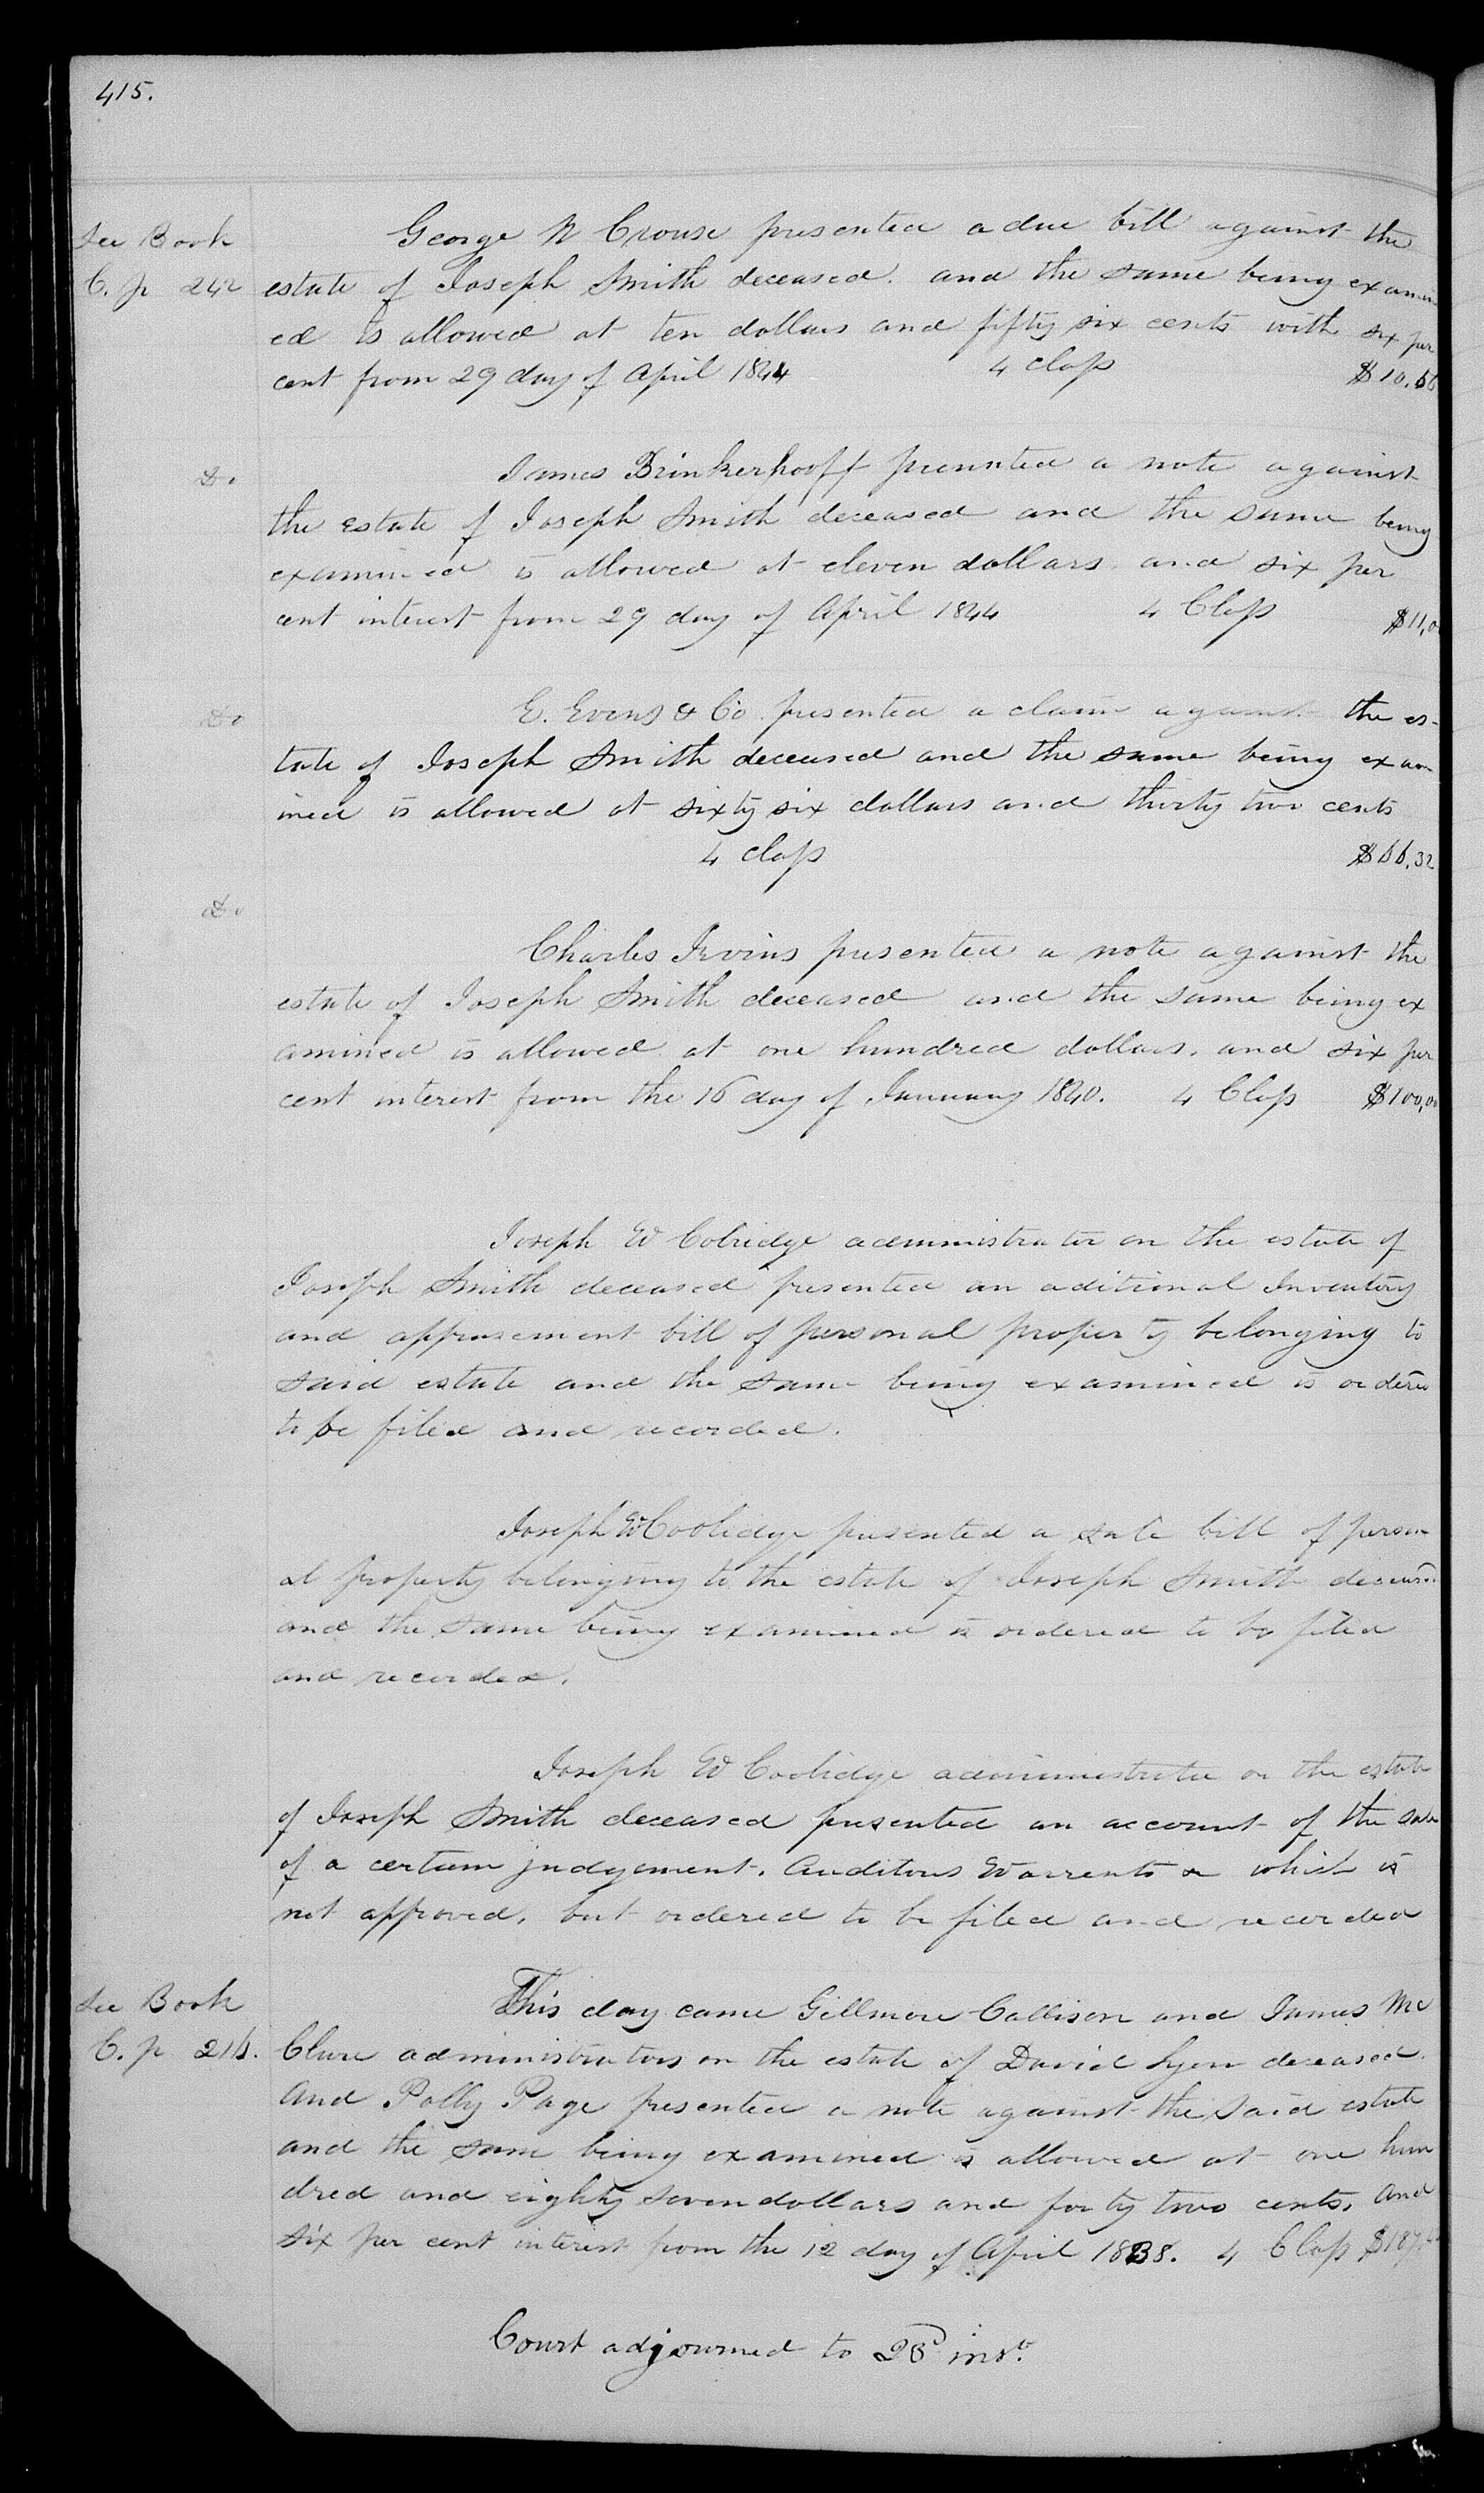 415.
See Book
C. p 242
George W Crouse presented a due bill against the
estate of Joseph Smith deceased. and the same being examin
ed is allowed at ten dollars and fifty six cents with six per
cent from 29 day of April 1844 4 Class $10.56
Do
James Brinkerhooff presented a note against
the estate of Joseph Smith deceased and the same being
examined is allowed at eleven dollars. and six per
cent interest from 29 day of April 1844 4 Class $11,0
Do
E. Evens & Co. presented a claim against the es-
tate of Joseph Smith deceased and the same being exam
ined is allowed at sixty six dollars and thirty two cents
4 class $66.32
Do
Charles Ivins presented a note against the
estate of Joseph Smith deceased and the same being ex
amined is allowed at one hundred dollars. and six per
cent interest from the 16 day of January 1840. 4 Class $100,00
Joseph W Colridge administrator on the estate of
Joseph Smith deceased presented an aditional Inventory
and apprasement bill of personal property belonging to
said estate and the same being examined is ordered
to be filed and recorded.
Joseph W Coolidge presented a sale bill of person
al property belonging to the estate of Joseph Smith deceased
and the same being examined is ordered to be filed
and recorded.
Joseph W Coolidge administrator on the estate
of Joseph Smith deceased presented an account of the sale
of a certain judgement. Auditors Warrents & which is
not approved. but ordered to be filed and recorded
See Book
C. p 216.
This day came Gillmore Callison and James Mc
Clure administrators on the estate of David Lyon deceased.
And Polly Page presented a note against the said estate
and the same being examined is allowed at one hun
dred and eighty seven dollars and forty two cents. and
six per cent interest from the 12 day of April 1838. 4 Class $187,
Court adjourned to 28d inst.